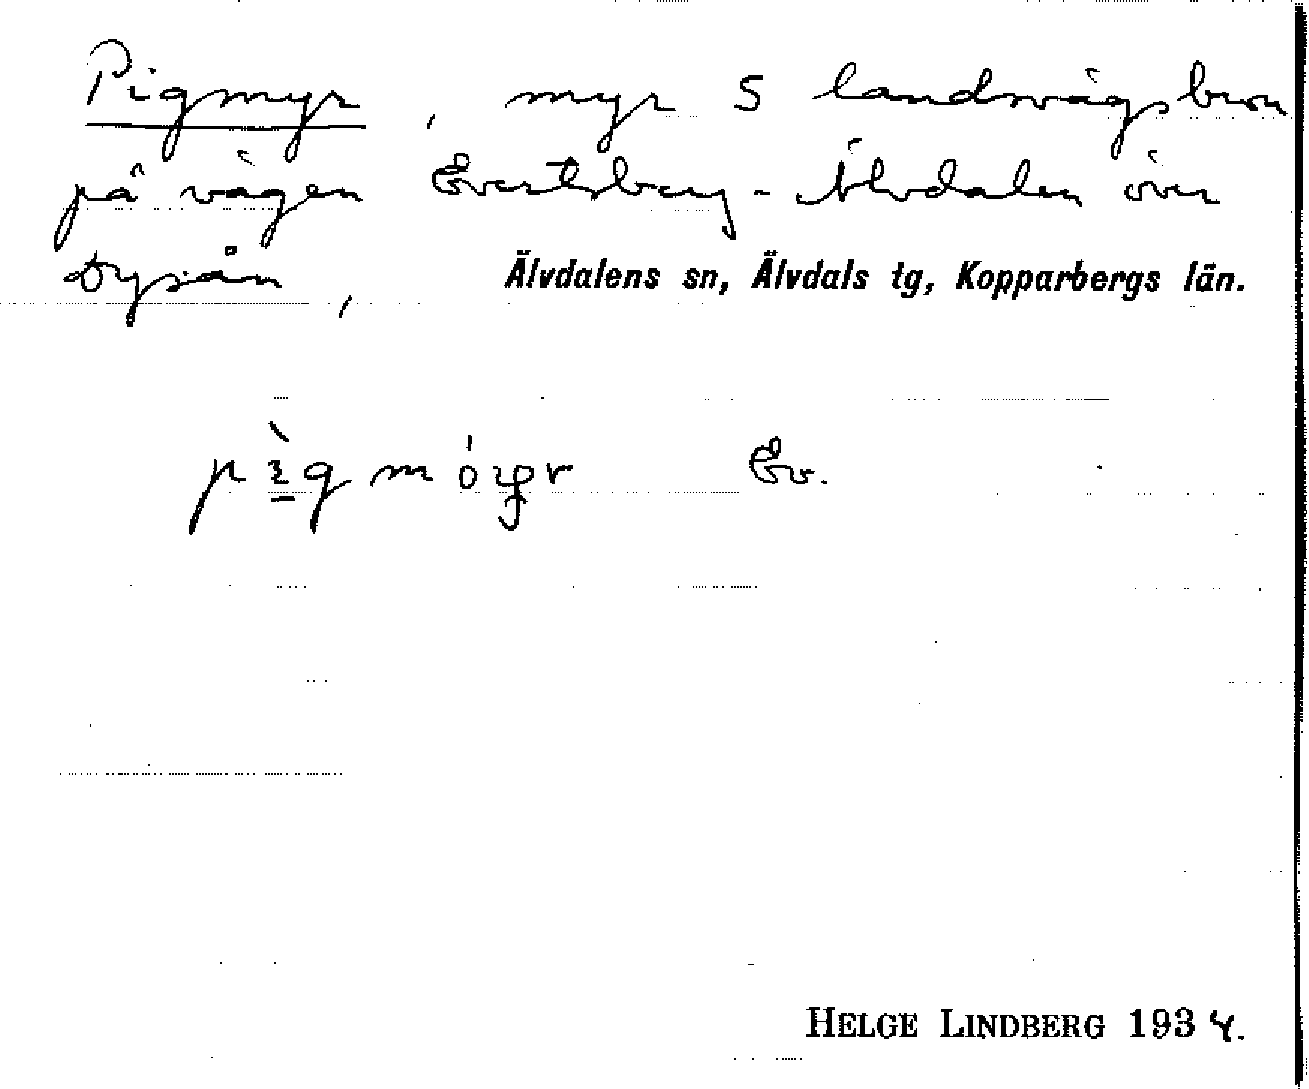 Pigmyr, myr S landsvägsbron
på vägen Evertsberg - Älvdalen över
Dysån, Älvdalens sn, Älvdals tg, Kopparbergs län.
Ev.
HELGE LINDBERG 1934.